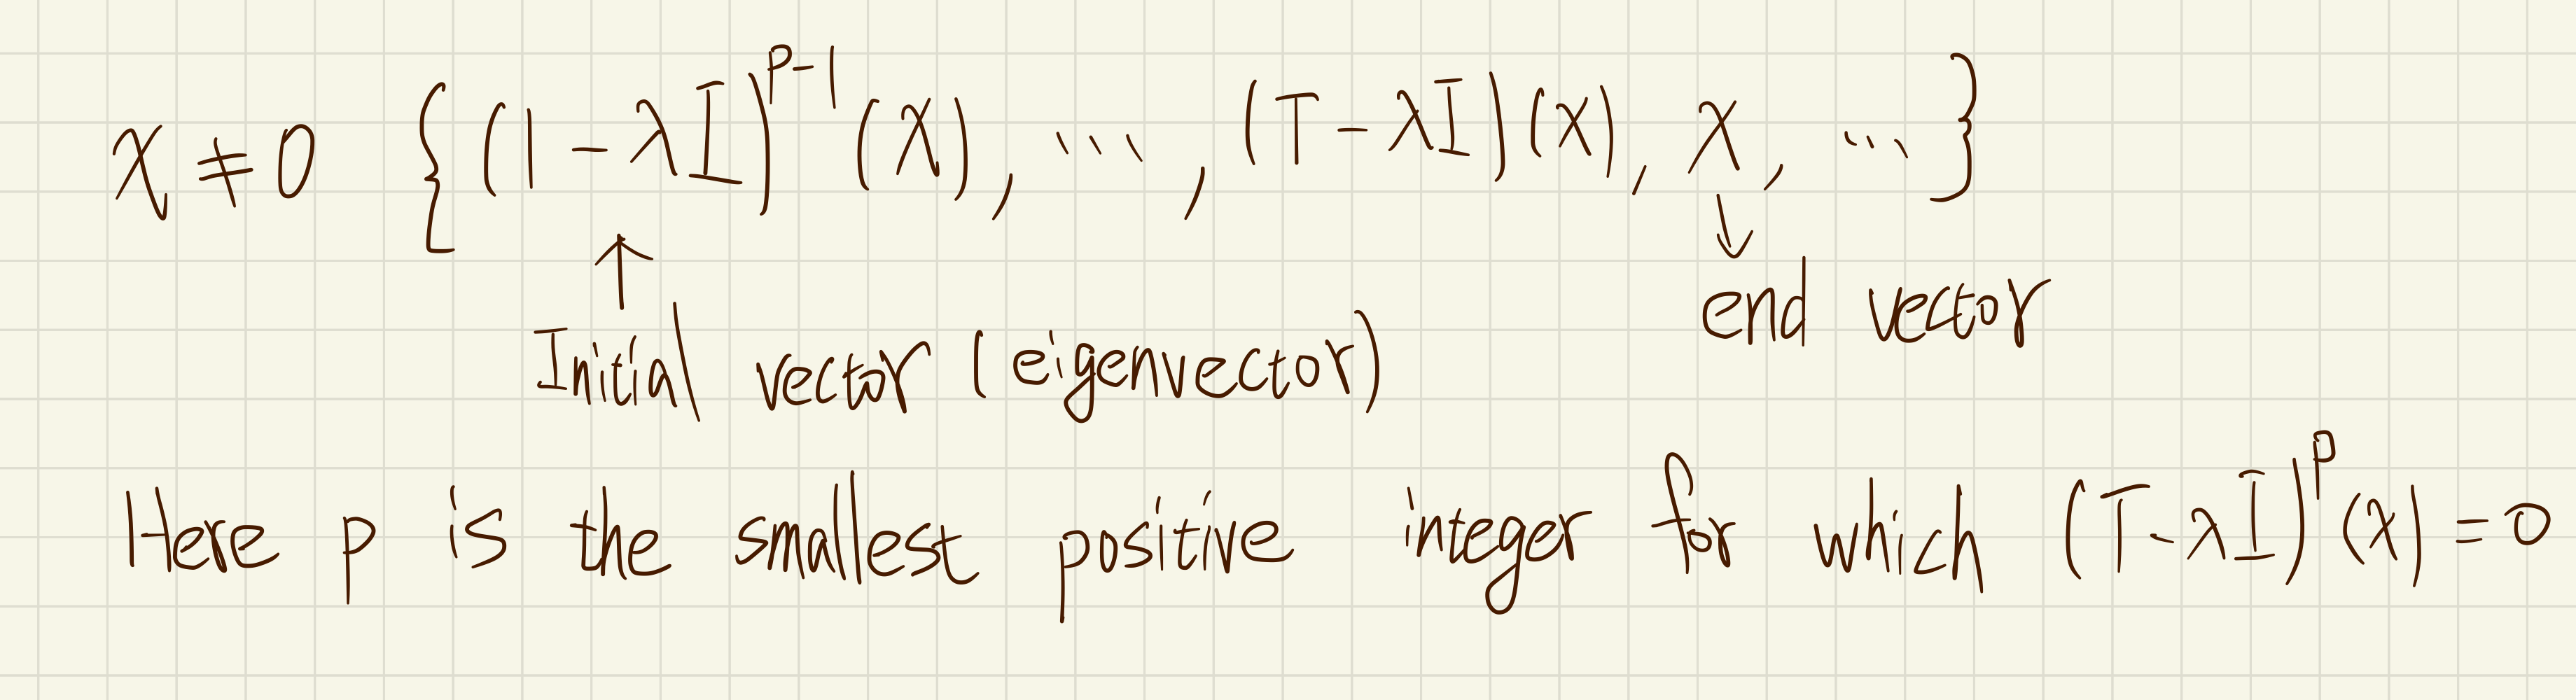 x ≠ 0 { (1 - λI)^{p-1} (x), ..., (T - λI)(x), x, ... }
↑ ↓
end vector
Initial vector (eigenvector)
Here p is the smallest positive integer for which (T - λI)^p (x) = 0